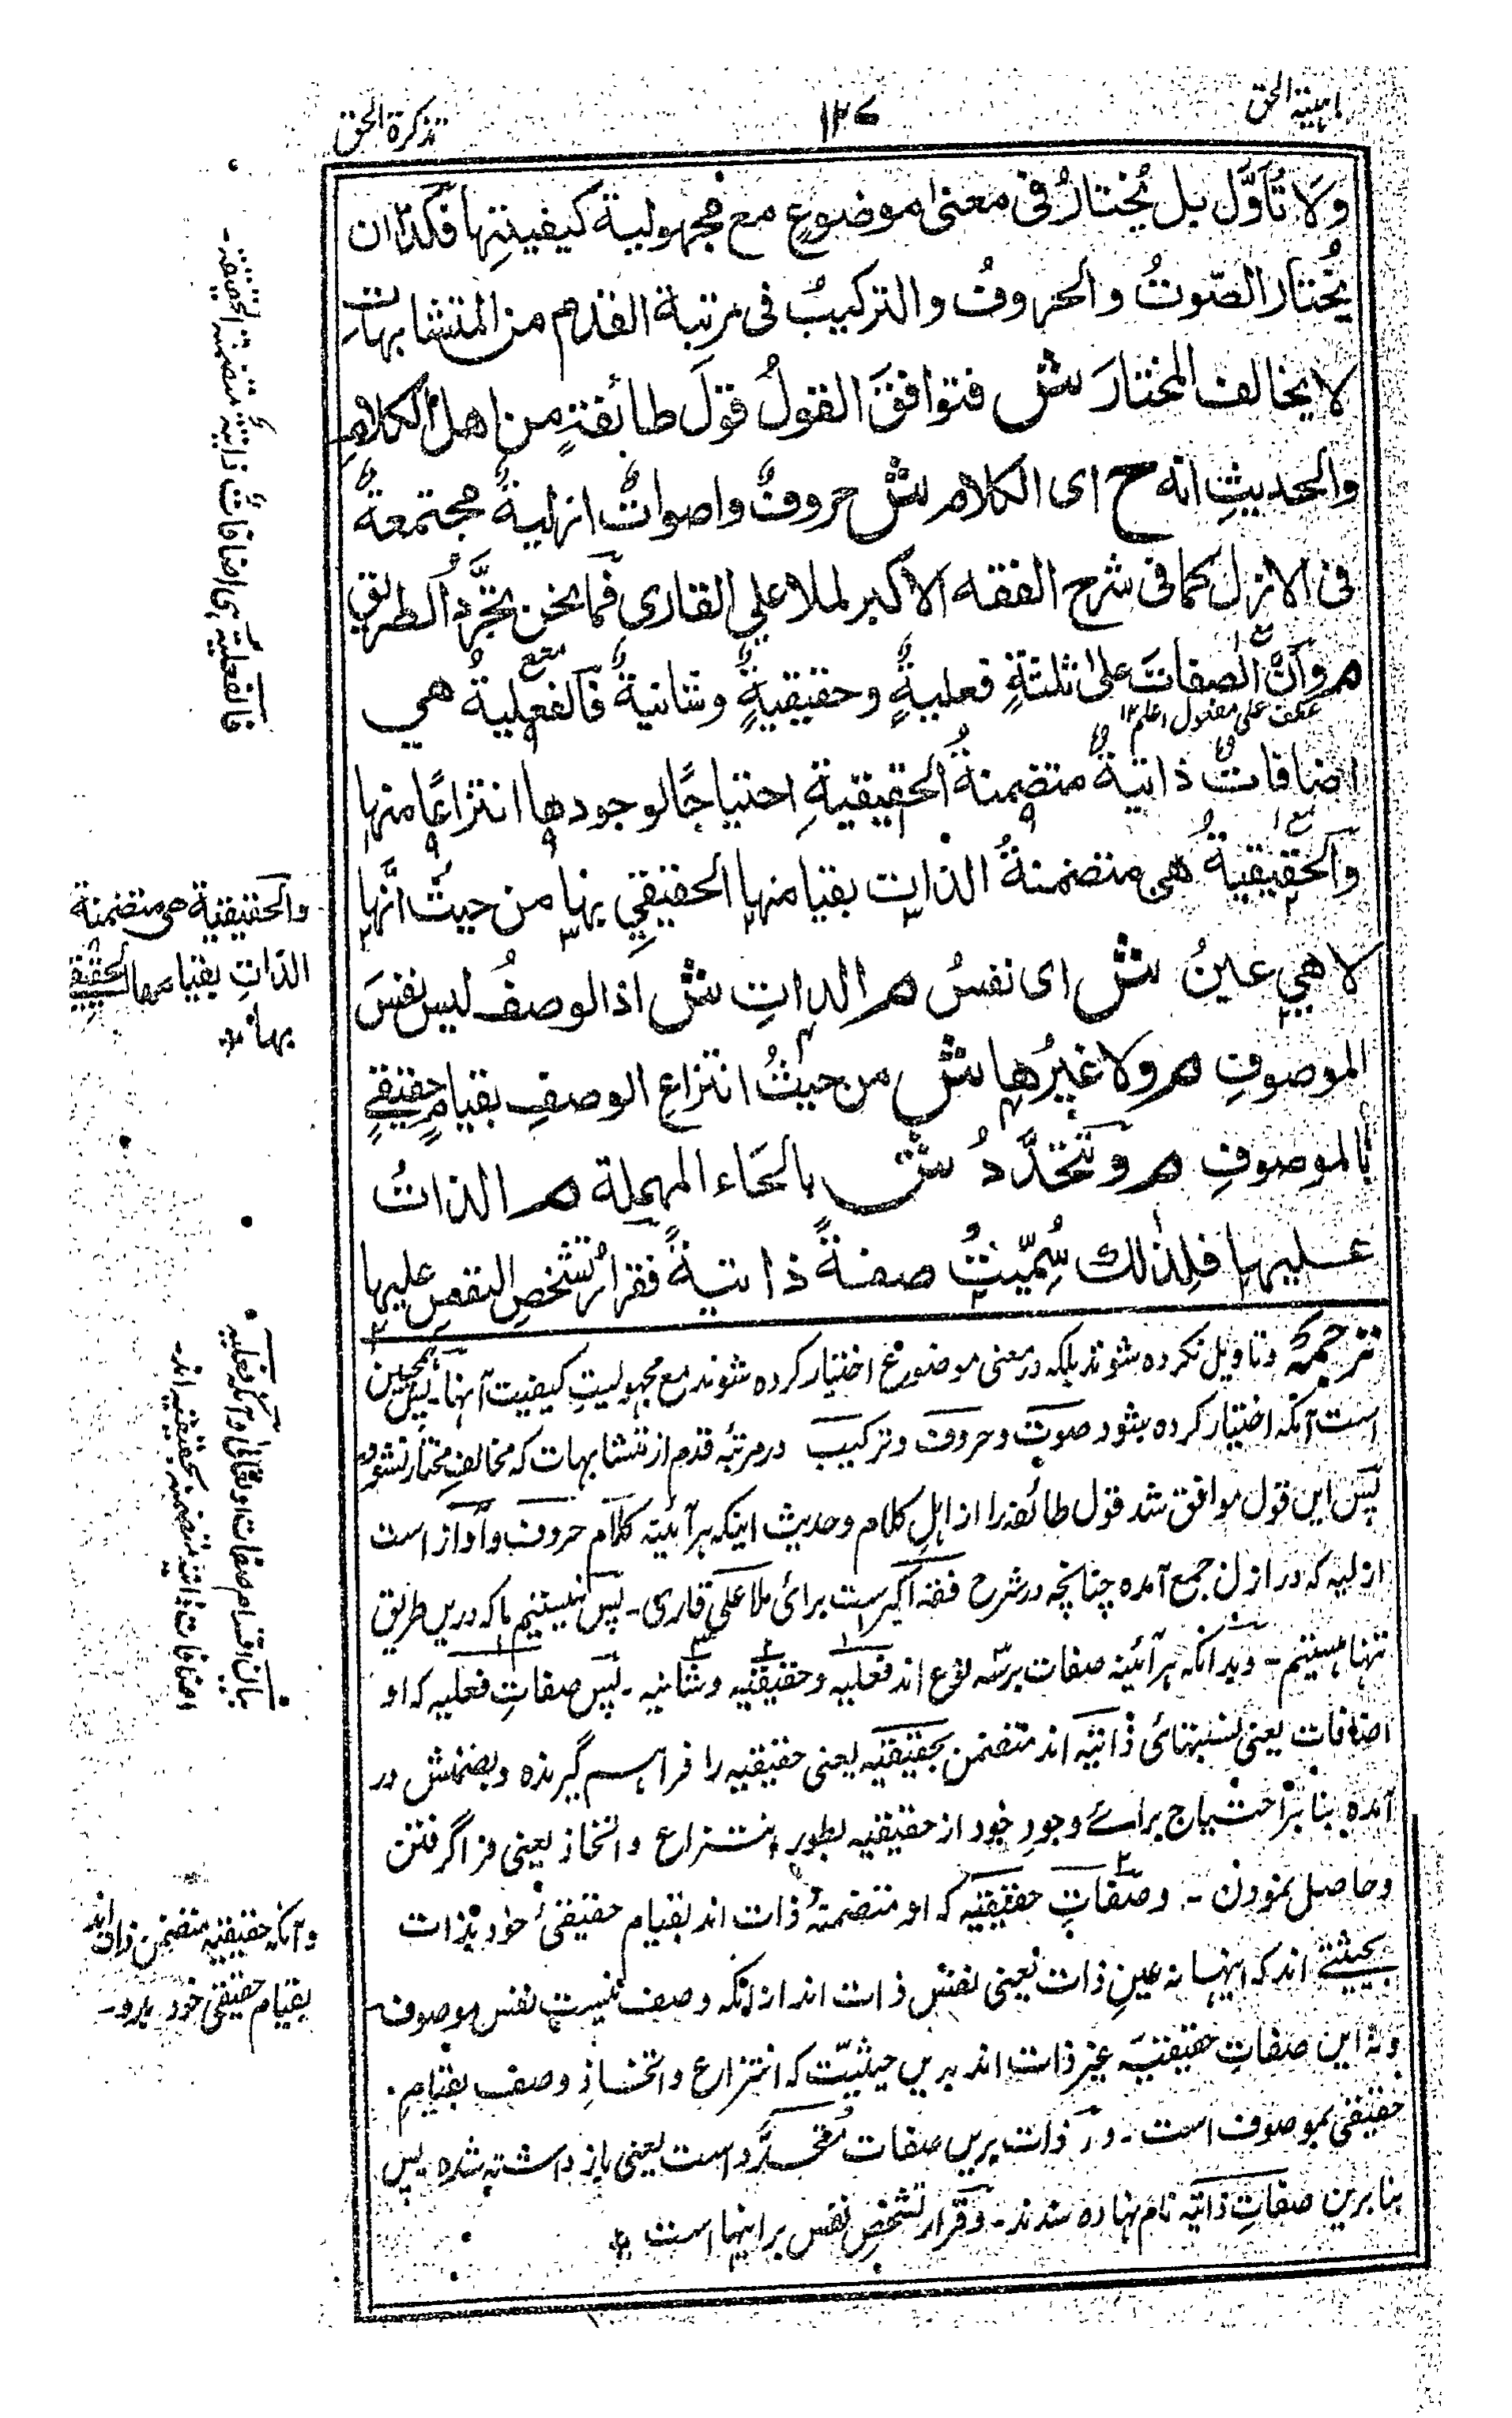 ماہیتہ الحق
۱۲۷
تذکرة الحق
وَلَا تُأَوَّل بل يُختارُ فى معنى موضوعٍ مع مجهولية كيفيتِها فكذا ان
يُختار الصّوتُ والحروفُ والتركيبُ فى مرتبة القدم من المتشابهات
لا يخالف المختارَ ش فتوافقَ القولُ قولَ طائفةٍ من اهل الكلام
والحديثِ انه ح اى الكلام ش حروفٌ واصواتٌ ازليةٌ مجتمعةٌ
فى الازل كما فى شرح الفقه الاكبر لملا علي القارى فما نحن بتجرُّد الطريق
م وأنَّ الصفاتَ على ثلثةٍ فعليةٍ وحقيقيةٍ وشانيةٍ فالفعليةُ هي
عطف على مفعول اعلم ۱۲
اضافاتٌ ذاتيةٌ متضمنةُ الحقيقيةِ احتياجًا لوجودها انتزاعًا منها
والحقيقيةُ هى متضمنةُ الذاتِ بقيامها الحقيقيِ بها من حيثُ انّها
لا هي عينُ ش اى نفسُ م الذاتِ ش اذ الوصفُ ليس نفسَ
الموصوفِ م ولا غيرُها ش من حيثُ انتزاعِ الوصفِ بقيامٍ حقيقيٍ
بالموصوفِ م وتتحَدَّدُ ش بالحَاء المهملة م الذاتُ
عليها فلذلك سُمّيتُ صفةً ذاتيةً فقرارُ تشخصِ النفسِ عليها
ترجمہ وتاویل نکردہ شوند بلکہ در معنی موضوع اختیار کردہ شوند مع مجہولیتِ کیفیت آنہا۔ پس ہمچنین
است آنکہ اختیار کردہ بشود صوت وحروف وترکیب در مرتبۂ قدم از متشابہات کہ مخالفِ مختار نشود
پس این قول موافق شد قول طائفہ را از اہل کلام وحدیث اینکہ ہر آئینہ کلام حروف وآواز است
ازلیہ کہ در ازل جمع آمدہ چنانچہ در شرح فقہ اکبر است برائی ملا علی قاری۔ پس نیستیم ما کہ دریں طریق
تنہا ہستیم۔ وبدانکہ ہر آئینہ صفات بر سہ نوع اند فعلیہ وحقیقیہ وشانیہ۔ پس صفاتِ فعلیہ کہ او
اضافات یعنی نسبتہائی ذاتیہ اند متضمن بحقیقیہ یعنی حقیقیہ را فراہم گیرندہ وبضمنش در
آمدہ بنا بر احتیاج برائے وجودِ خود از حقیقیہ بطور انتزاع واتخاذ یعنی فرا گرفتن
وحاصل نمودن۔ وصفاتِ حقیقیہ کہ او متضمنۂ ذات اند بقیام حقیقیٔ خود بذات
بحیثیتے اند کہ اینہا نہ عینِ ذات یعنی نفس ذات اند ازانکہ وصف نیست نفس موصوف
ونہ این صفاتِ حقیقیہ غیر ذات اند بریں حیثیّت کہ انتزاع واتخاذِ وصف بقیامِ
حقیقی بموصوف است۔ و ذات بریں صفات متحدّد است یعنی باز داشتہ شدہ پس
بنا برین صفاتِ ذاتیہ نام نہادہ شدند۔ وقرار تشخصِ نفس بر اینہا است
فالفعلية هى اضافاتٌ ذاتيةٌ متضمنة الحقيقة۔
والحقيقية هى متضمنة
الذاتِ بقيامها الحقيقي
بها
بیان اقسام صفات او تعالیٰ وآنکہ فعلیہ
اضافات ذاتیہ متضمنہ بحقیقیہ اند۔
وآنکہ حقیقیہ متضمن ذات اند
بقیام حقیقی خود بدو۔